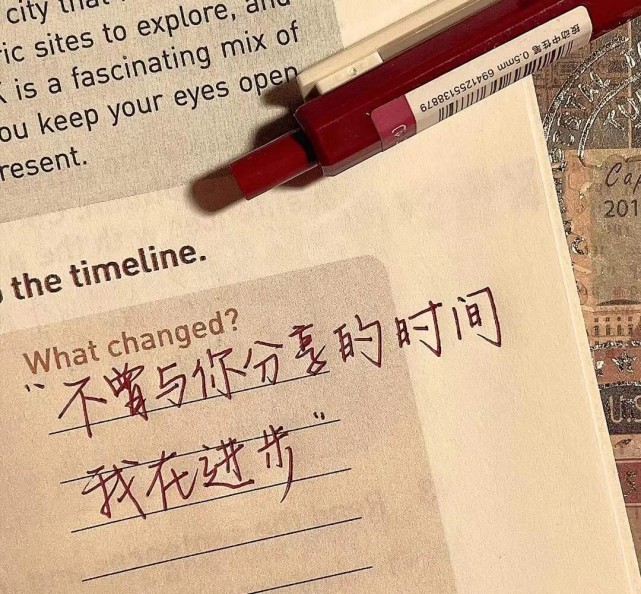 city that
ric sites to explore, and
is a fascinating mix of
ou keep your eyes open
resent.
按动中性笔 0.5mm 6941255138879
the timeline.
What changed?
“不曾与你分享的时间
我在进步”
Ca
201
U.S